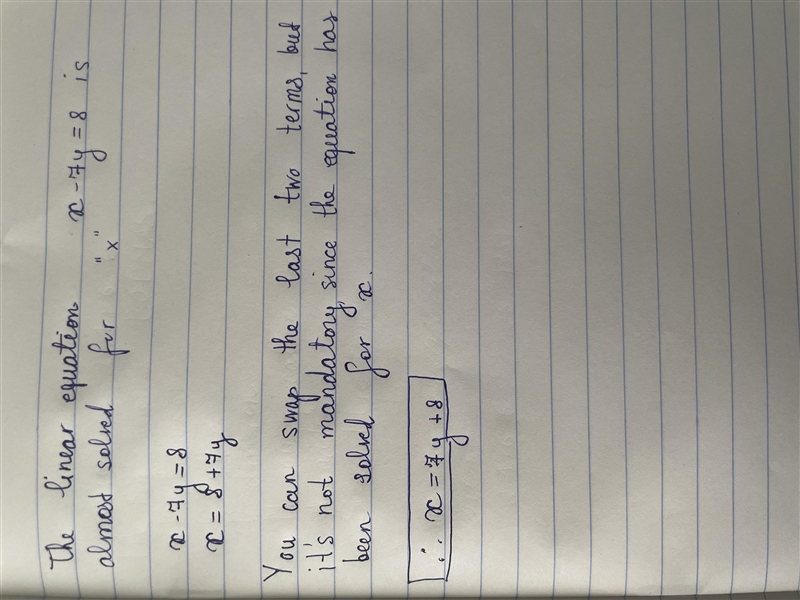 The linear equation x - 7y = 8 is
almost solved for "x"
x - 7y = 8
x = 8 + 7y
You can swap the last two terms, but
it's not mandatory, since the equation has
been solved for x.
∴ x = 7y + 8